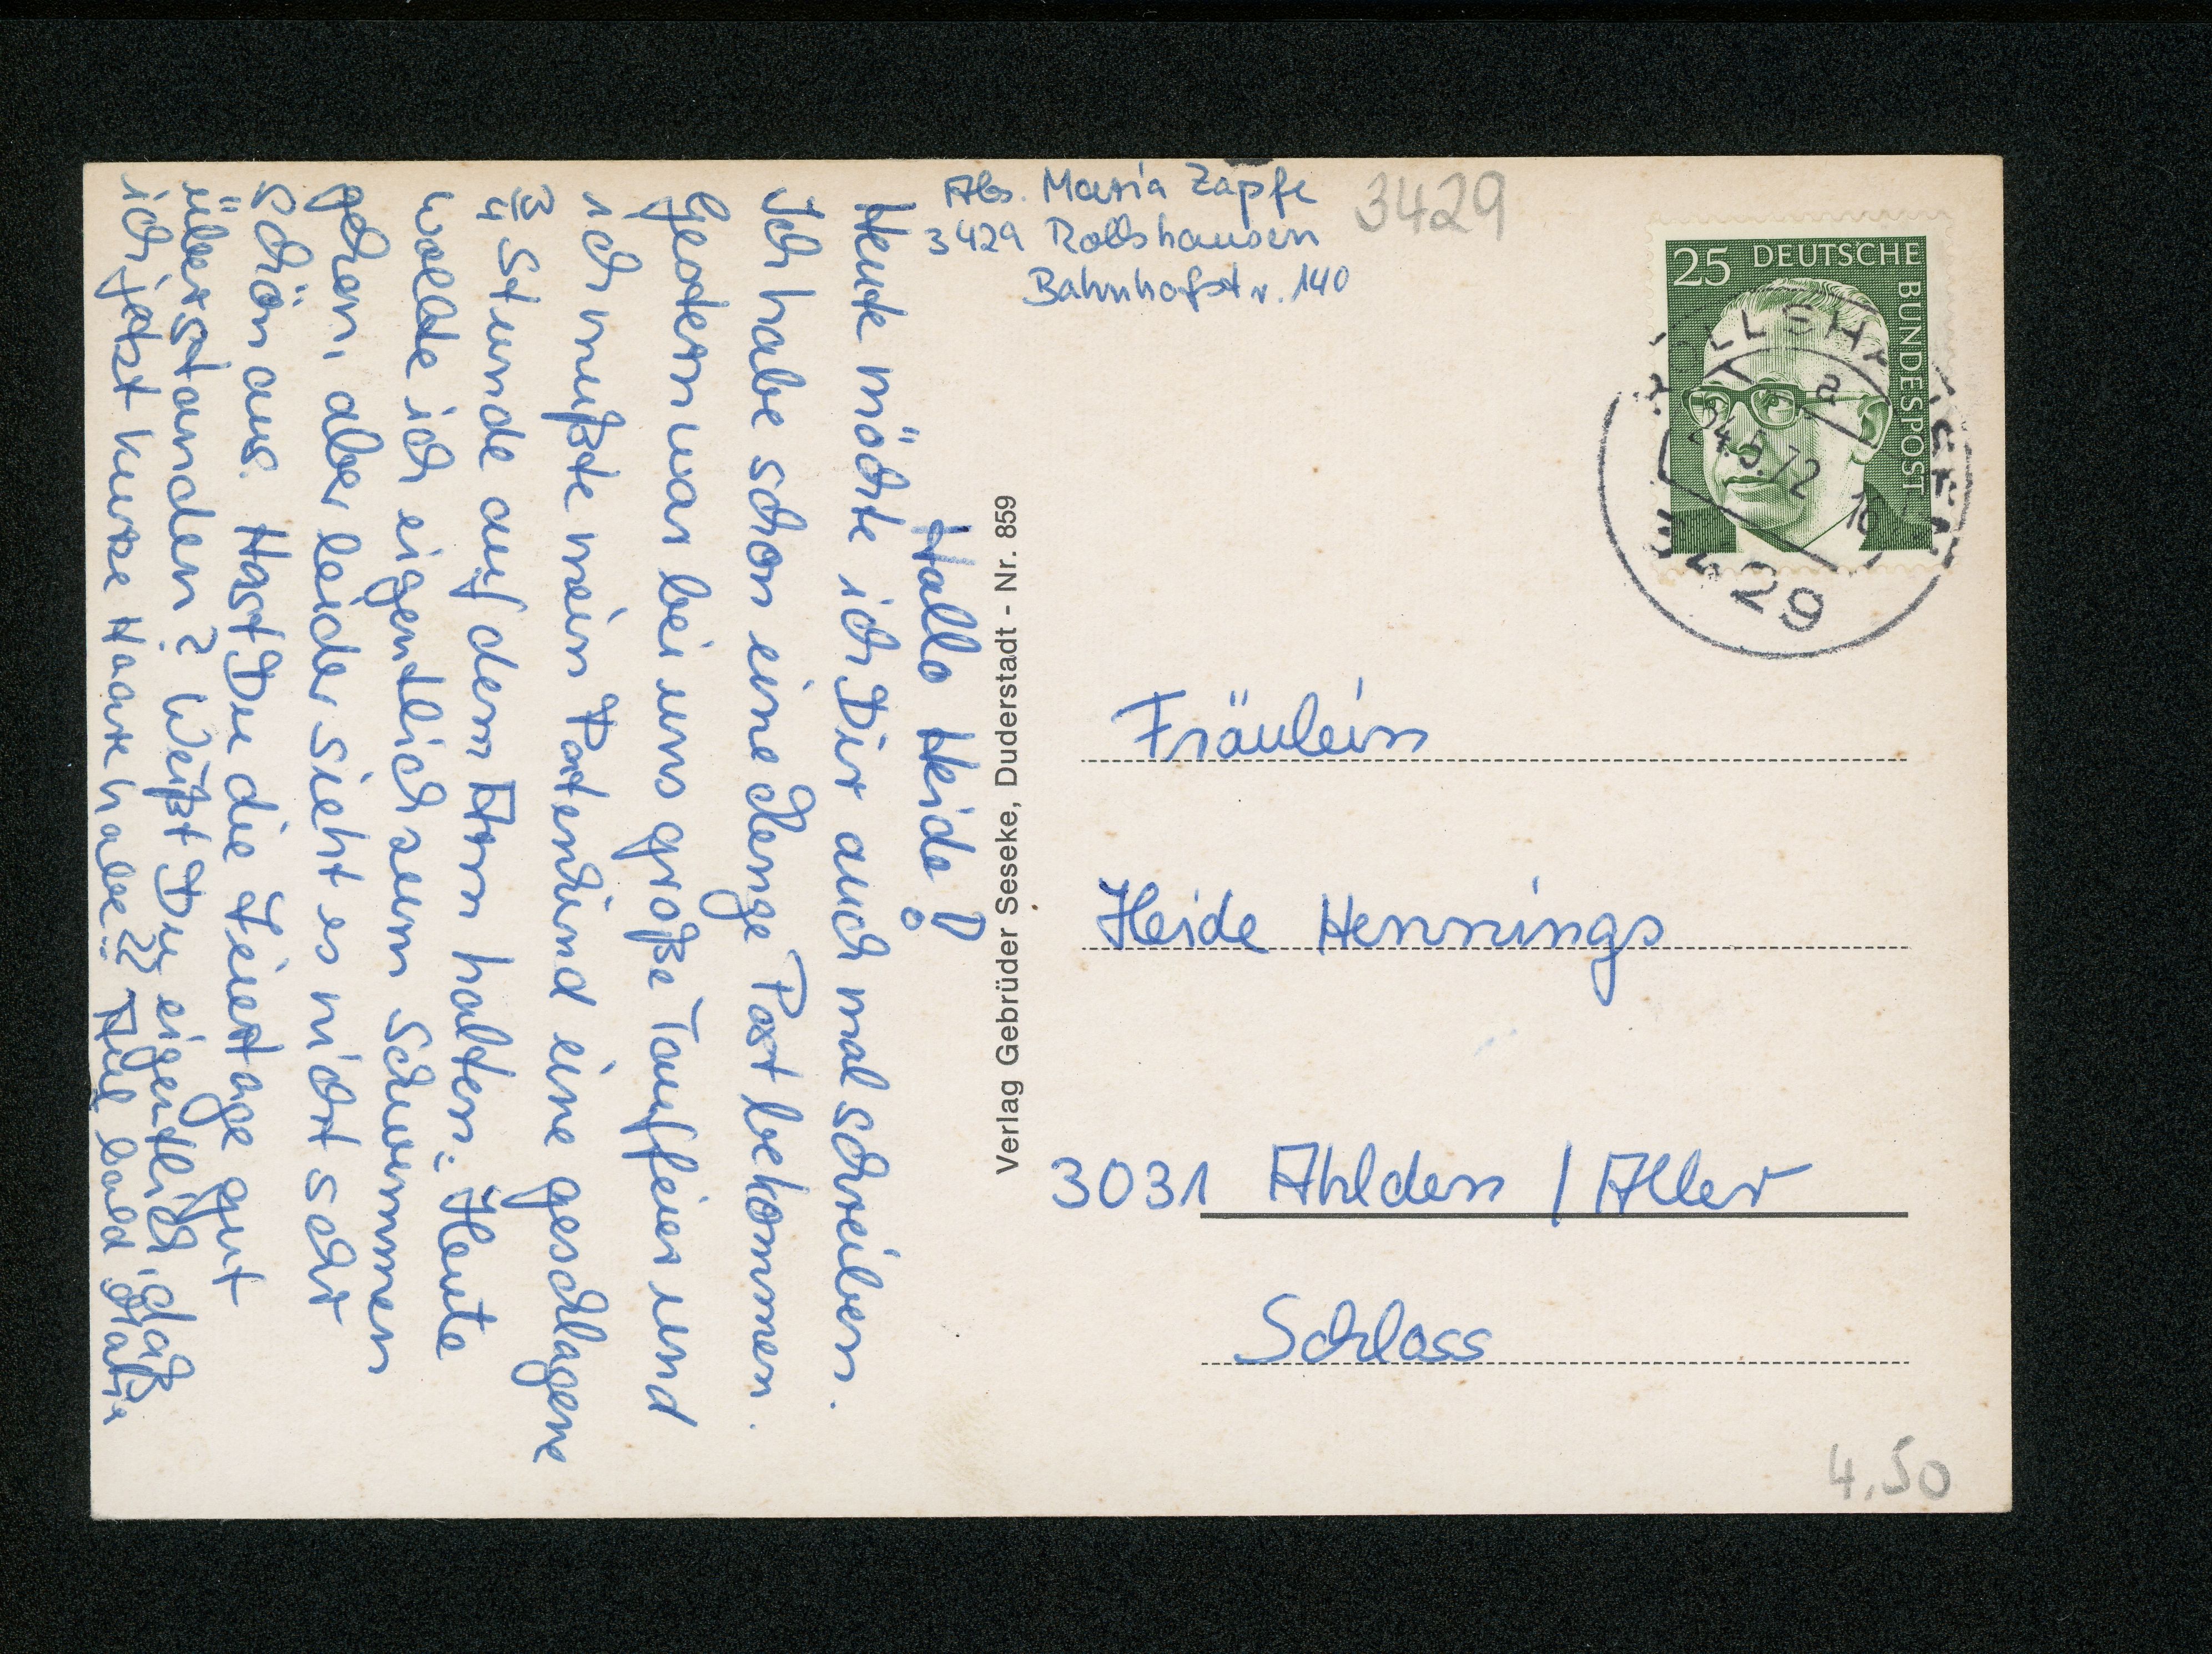 Abs. Maria Zapfe
3429 Rollshausen
Bahnhofstr. 140
3429
25 DEUTSCHE BUNDESPOST
24.5.72
3429
Hallo Heide!
Heute möchte ich Dir auch mal schreiben.
Ich habe schon eine Menge Post bekommen.
Gestern war bei uns große Tauffeier und
ich mußte mein Patenkind eine geschlagene
3/4 Stunde auf dem Arm halten. Heute
wollte ich eigentlich zum Schwimmen
gehen, aber leider sieht es nicht sehr
schön aus. Hast Du die Feiertage gut
überstanden? Weißt Du eigentlich, daß
ich jetzt kurze Haare habe?? Bis bald Maria
Verlag Gebrüder Seseke, Duderstadt - Nr. 859
Fräulein
Heide Hennings
3031 Ahlden / Aller
Schloss
4,50